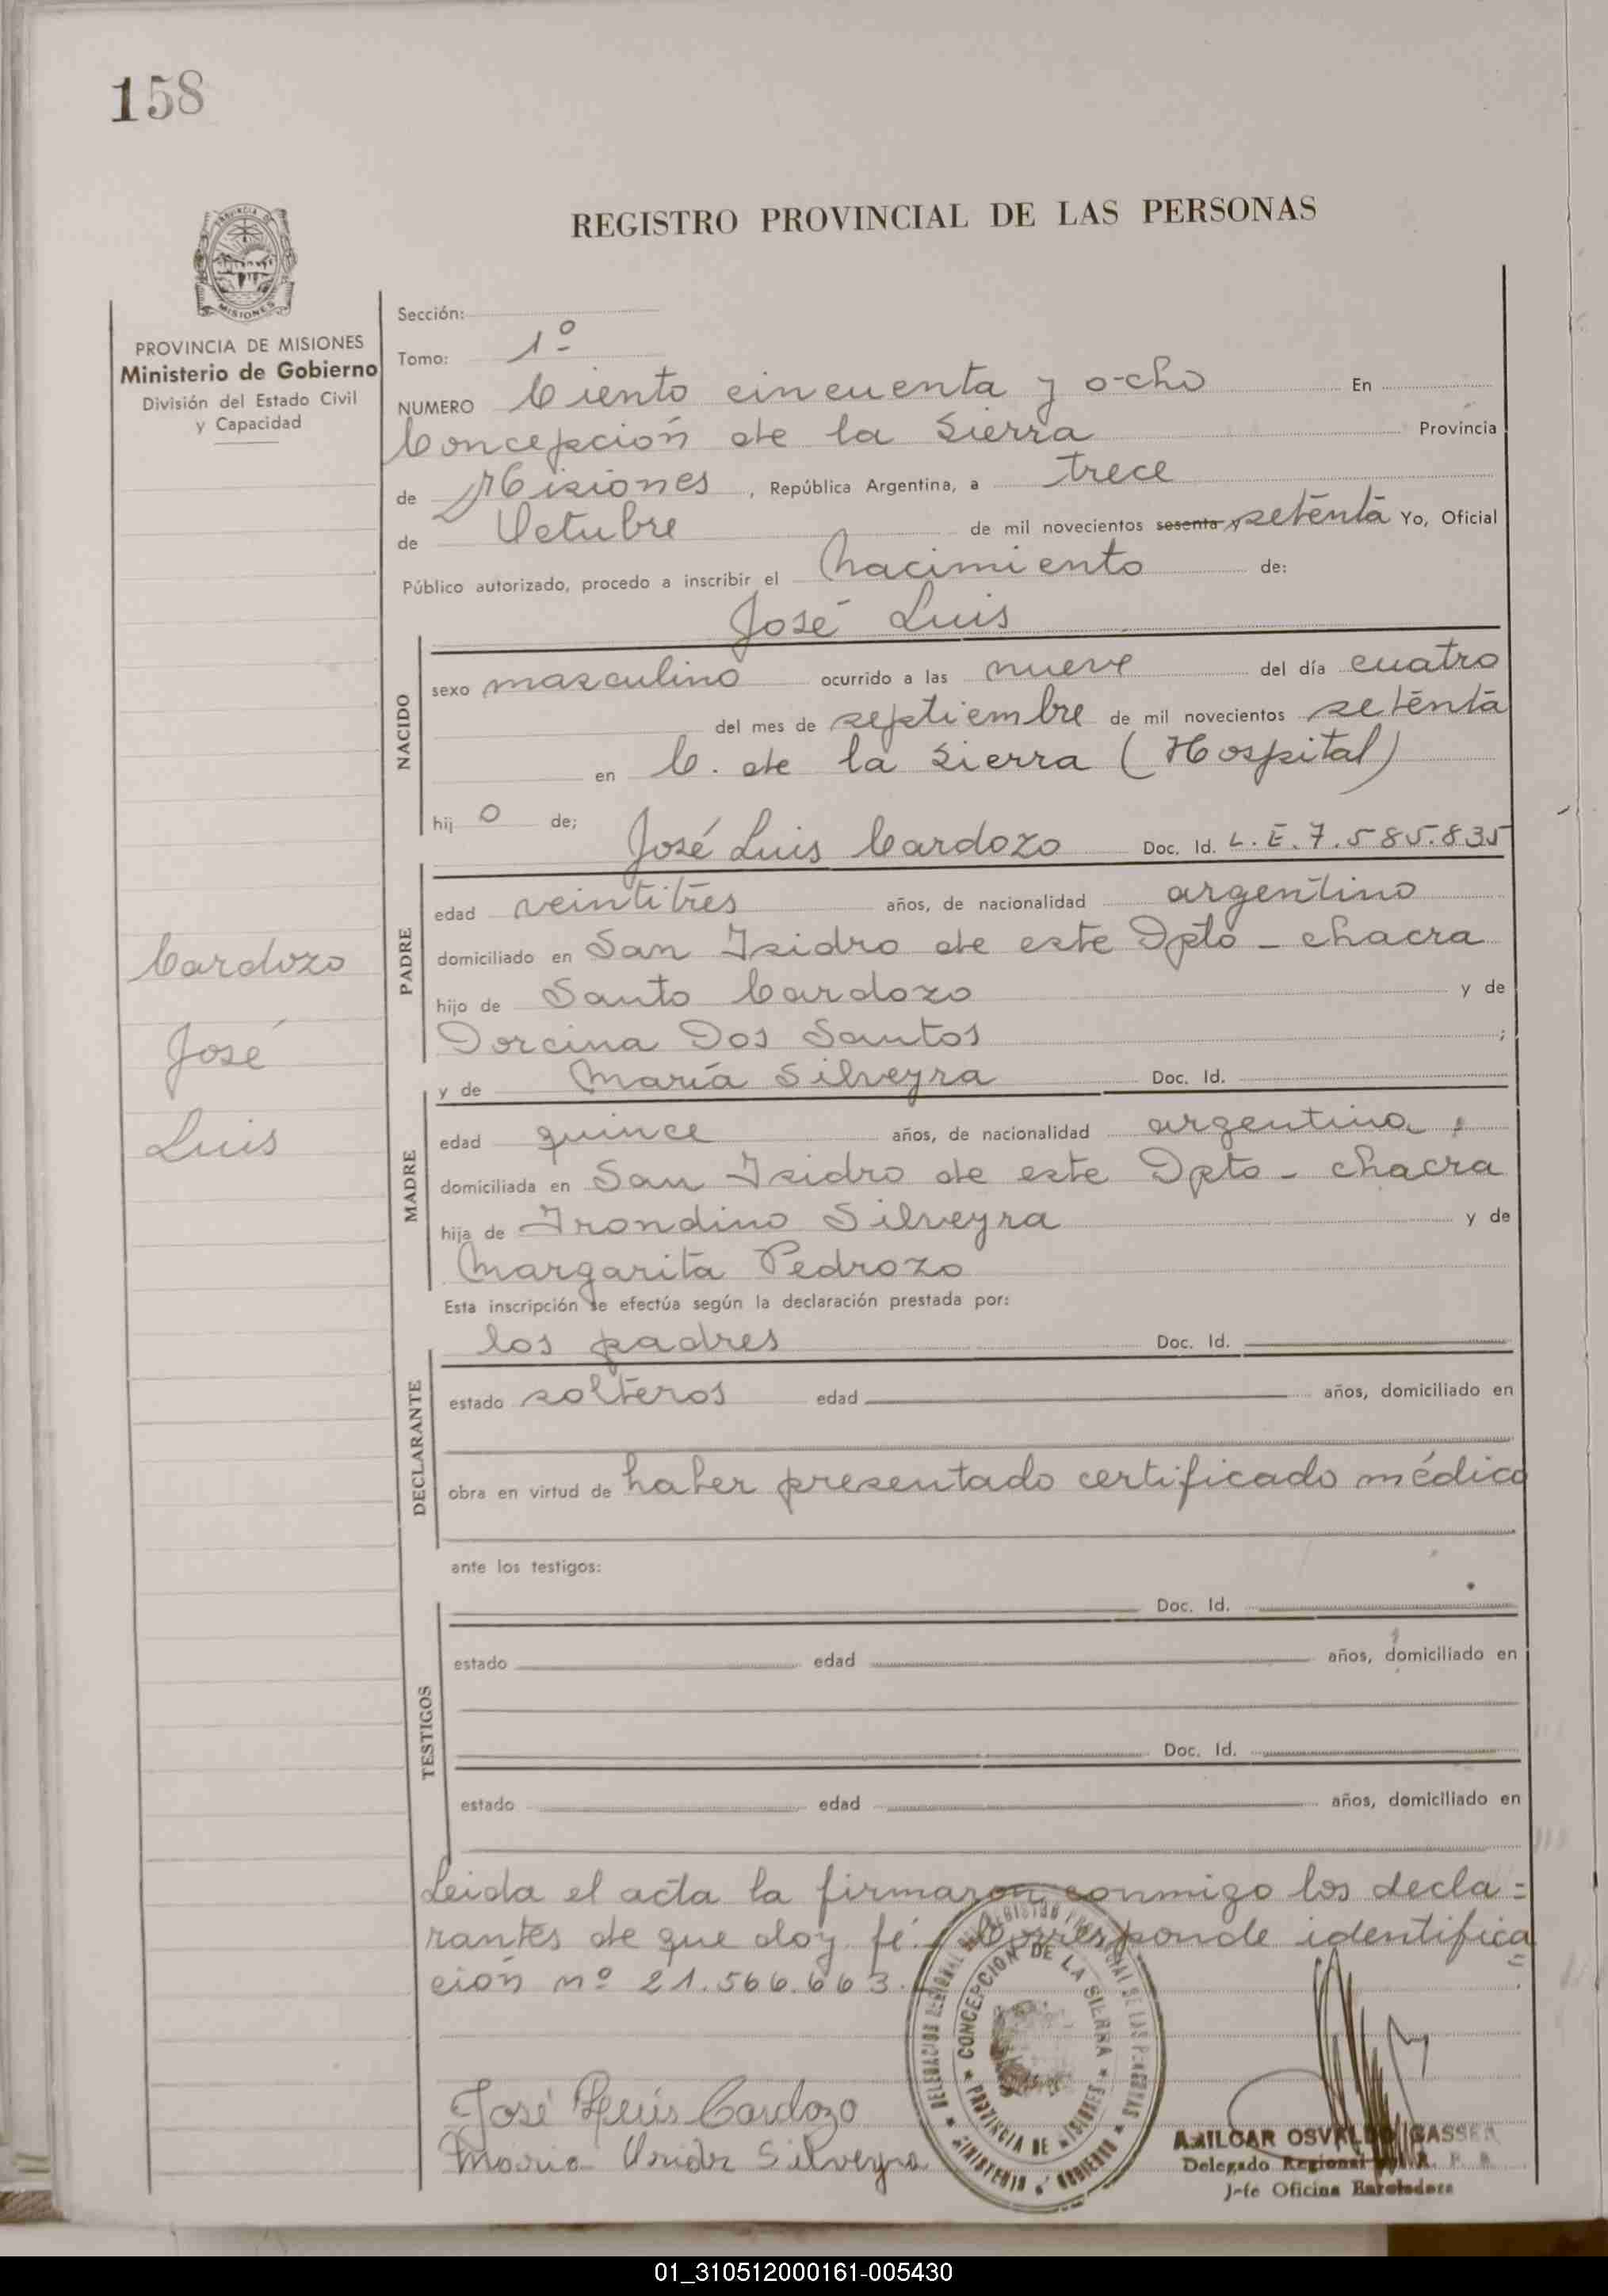 158
REGISTRO PROVINCIAL DE LAS PERSONAS
PROVINCIA DE MISIONES
Ministerio de Gobierno
División del Estado Civil
y Capacidad
Sección:
Tomo: 1º
NUMERO Ciento cincuenta y ocho En
Concepción de la Sierra Provincia
de Misiones, República Argentina, a trece
de Octubre de mil novecientos sesenta y setenta Yo, Oficial
Público autorizado, procedo a inscribir el nacimiento de:
José Luis
NACIDO
sexo masculino ocurrido a las nueve del día cuatro
del mes de septiembre de mil novecientos setenta
en C. de la Sierra (Hospital)
hij o de;
José Luis Cardozo Doc. Id. L.E.7.585.835
PADRE
edad veintitres años, de nacionalidad argentino
domiciliado en San Isidro de este Dpto - chacra
hijo de Santo Cardozo y de
Dorcina Dos Santos ;
y de María Silveyra Doc. Id.
MADRE
edad quince años, de nacionalidad argentina,
domiciliada en San Isidro de este Dpto - chacra
hija de Irondino Silveyra y de
Margarita Pedrozo
Esta inscripción se efectúa según la declaración prestada por:
los padres Doc. Id.
DECLARANTE
estado solteros edad años, domiciliado en
obra en virtud de haber presentado certificado médico
ante los testigos:
Doc. Id.
TESTIGOS
estado edad años, domiciliado en
Doc. Id.
estado edad años, domiciliado en
Leida el acta la firmaron conmigo los decla=
rantes de que doy fé. Corresponde identifica
ción nº 21.566.663.
Cardozo
José
Luis
José Luis Cardozo
Maria Silveyra
CONCEPCION DE LA SIERRA * PROVINCIA DE MISIONES *
DELEGACION REGIONAL DEL REGISTRO PROVINCIAL DE LAS PERSONAS * MINISTERIO GOBIERNO *
OSVALDO GASSEN
Delegado Regional R. P. P.
Jefe Oficina
01_310512000161-005430